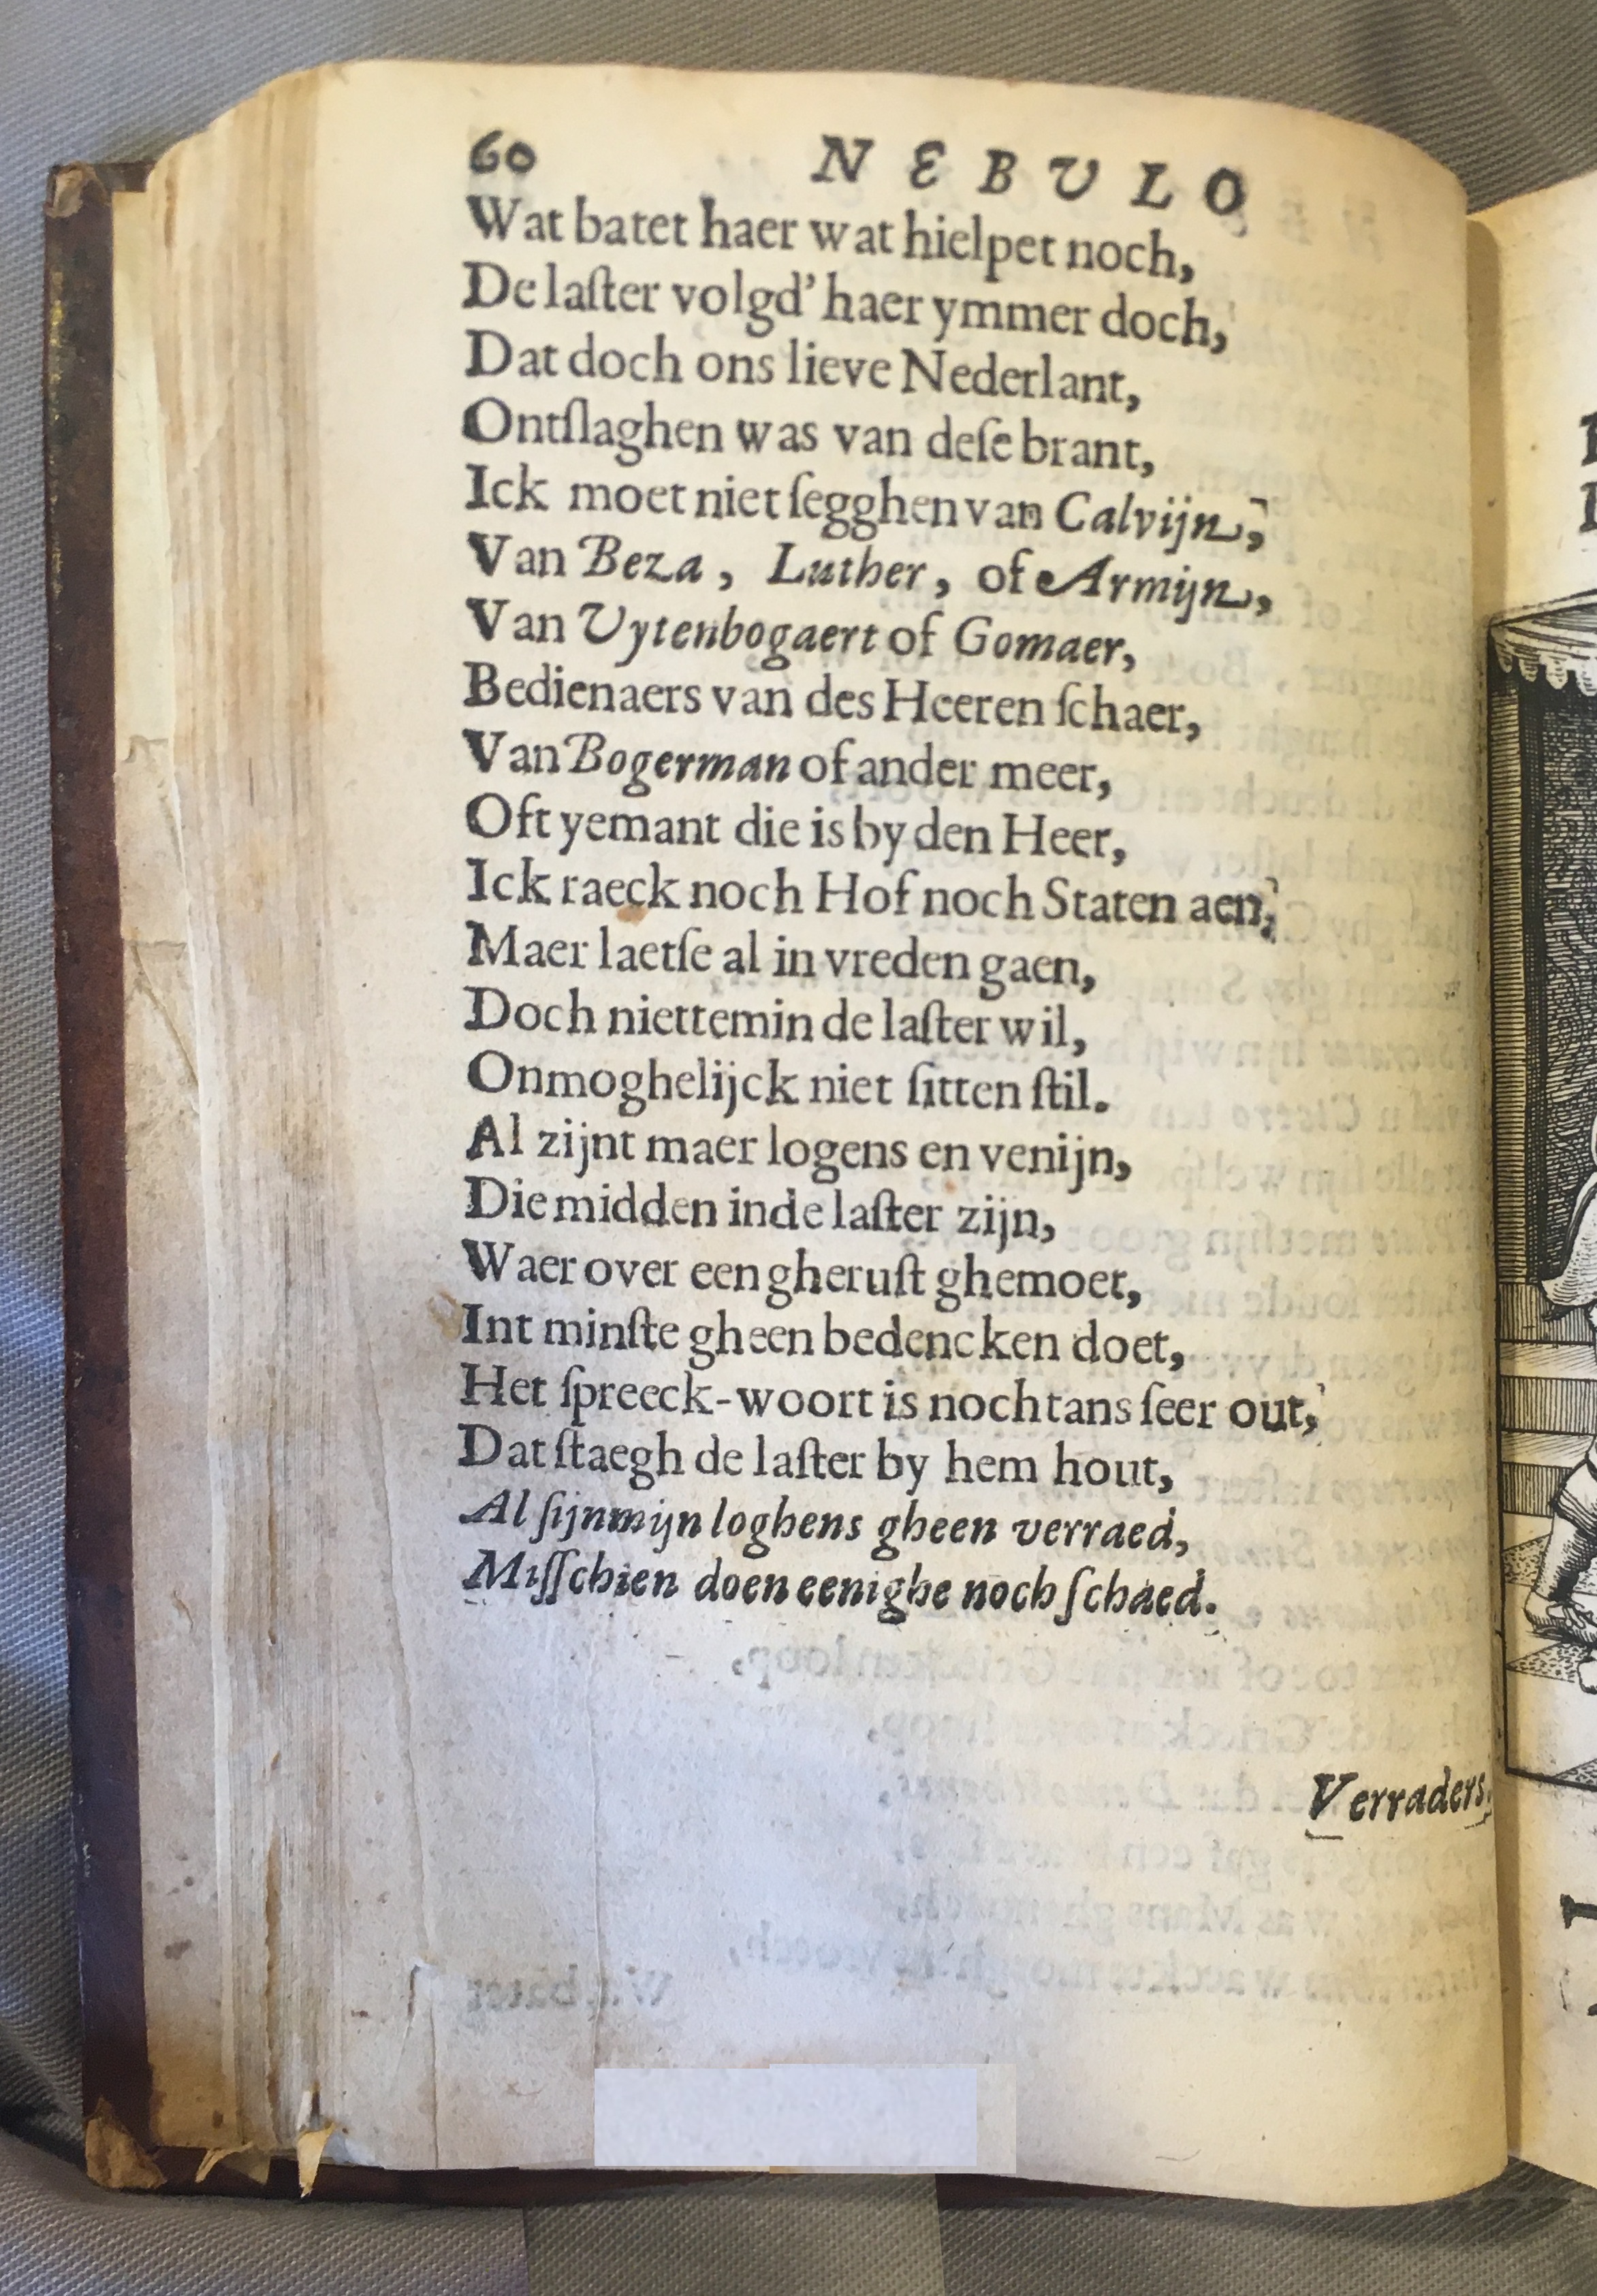 60 NEBVLO
Wat batet haer wat hielpet noch,
De laſter volgd' haer ymmer doch,
Dat doch ons lieve Nederlant,
Ontſlaghen was van deſe brant,
Ick moet niet ſegghen van Calvijn,
Van Beza, Luther, of Armijn,
Van Vytenbogaert of Gomaer,
Bedienaers van des Heeren ſchaer,
Van Bogerman of ander meer,
Oft yemant die is by den Heer,
Ick raeck noch Hof noch Staten aen,
Maer laetſe al in vreden gaen,
Doch niettemin de laſter wil,
Onmoghelijck niet ſitten ſtil.
Al zijnt maer logens en venijn,
Die midden inde laſter zijn,
Waer over een gheruſt ghemoet,
Int minſte gheen bedencken doet,
Het ſpreeck-woort is nochtans ſeer out,
Dat ſtaegh de laſter by hem hout,
Al ſijn mijn loghens gheen verraed,
Miſſchien doen eenighe noch ſchaed.
Verraders,